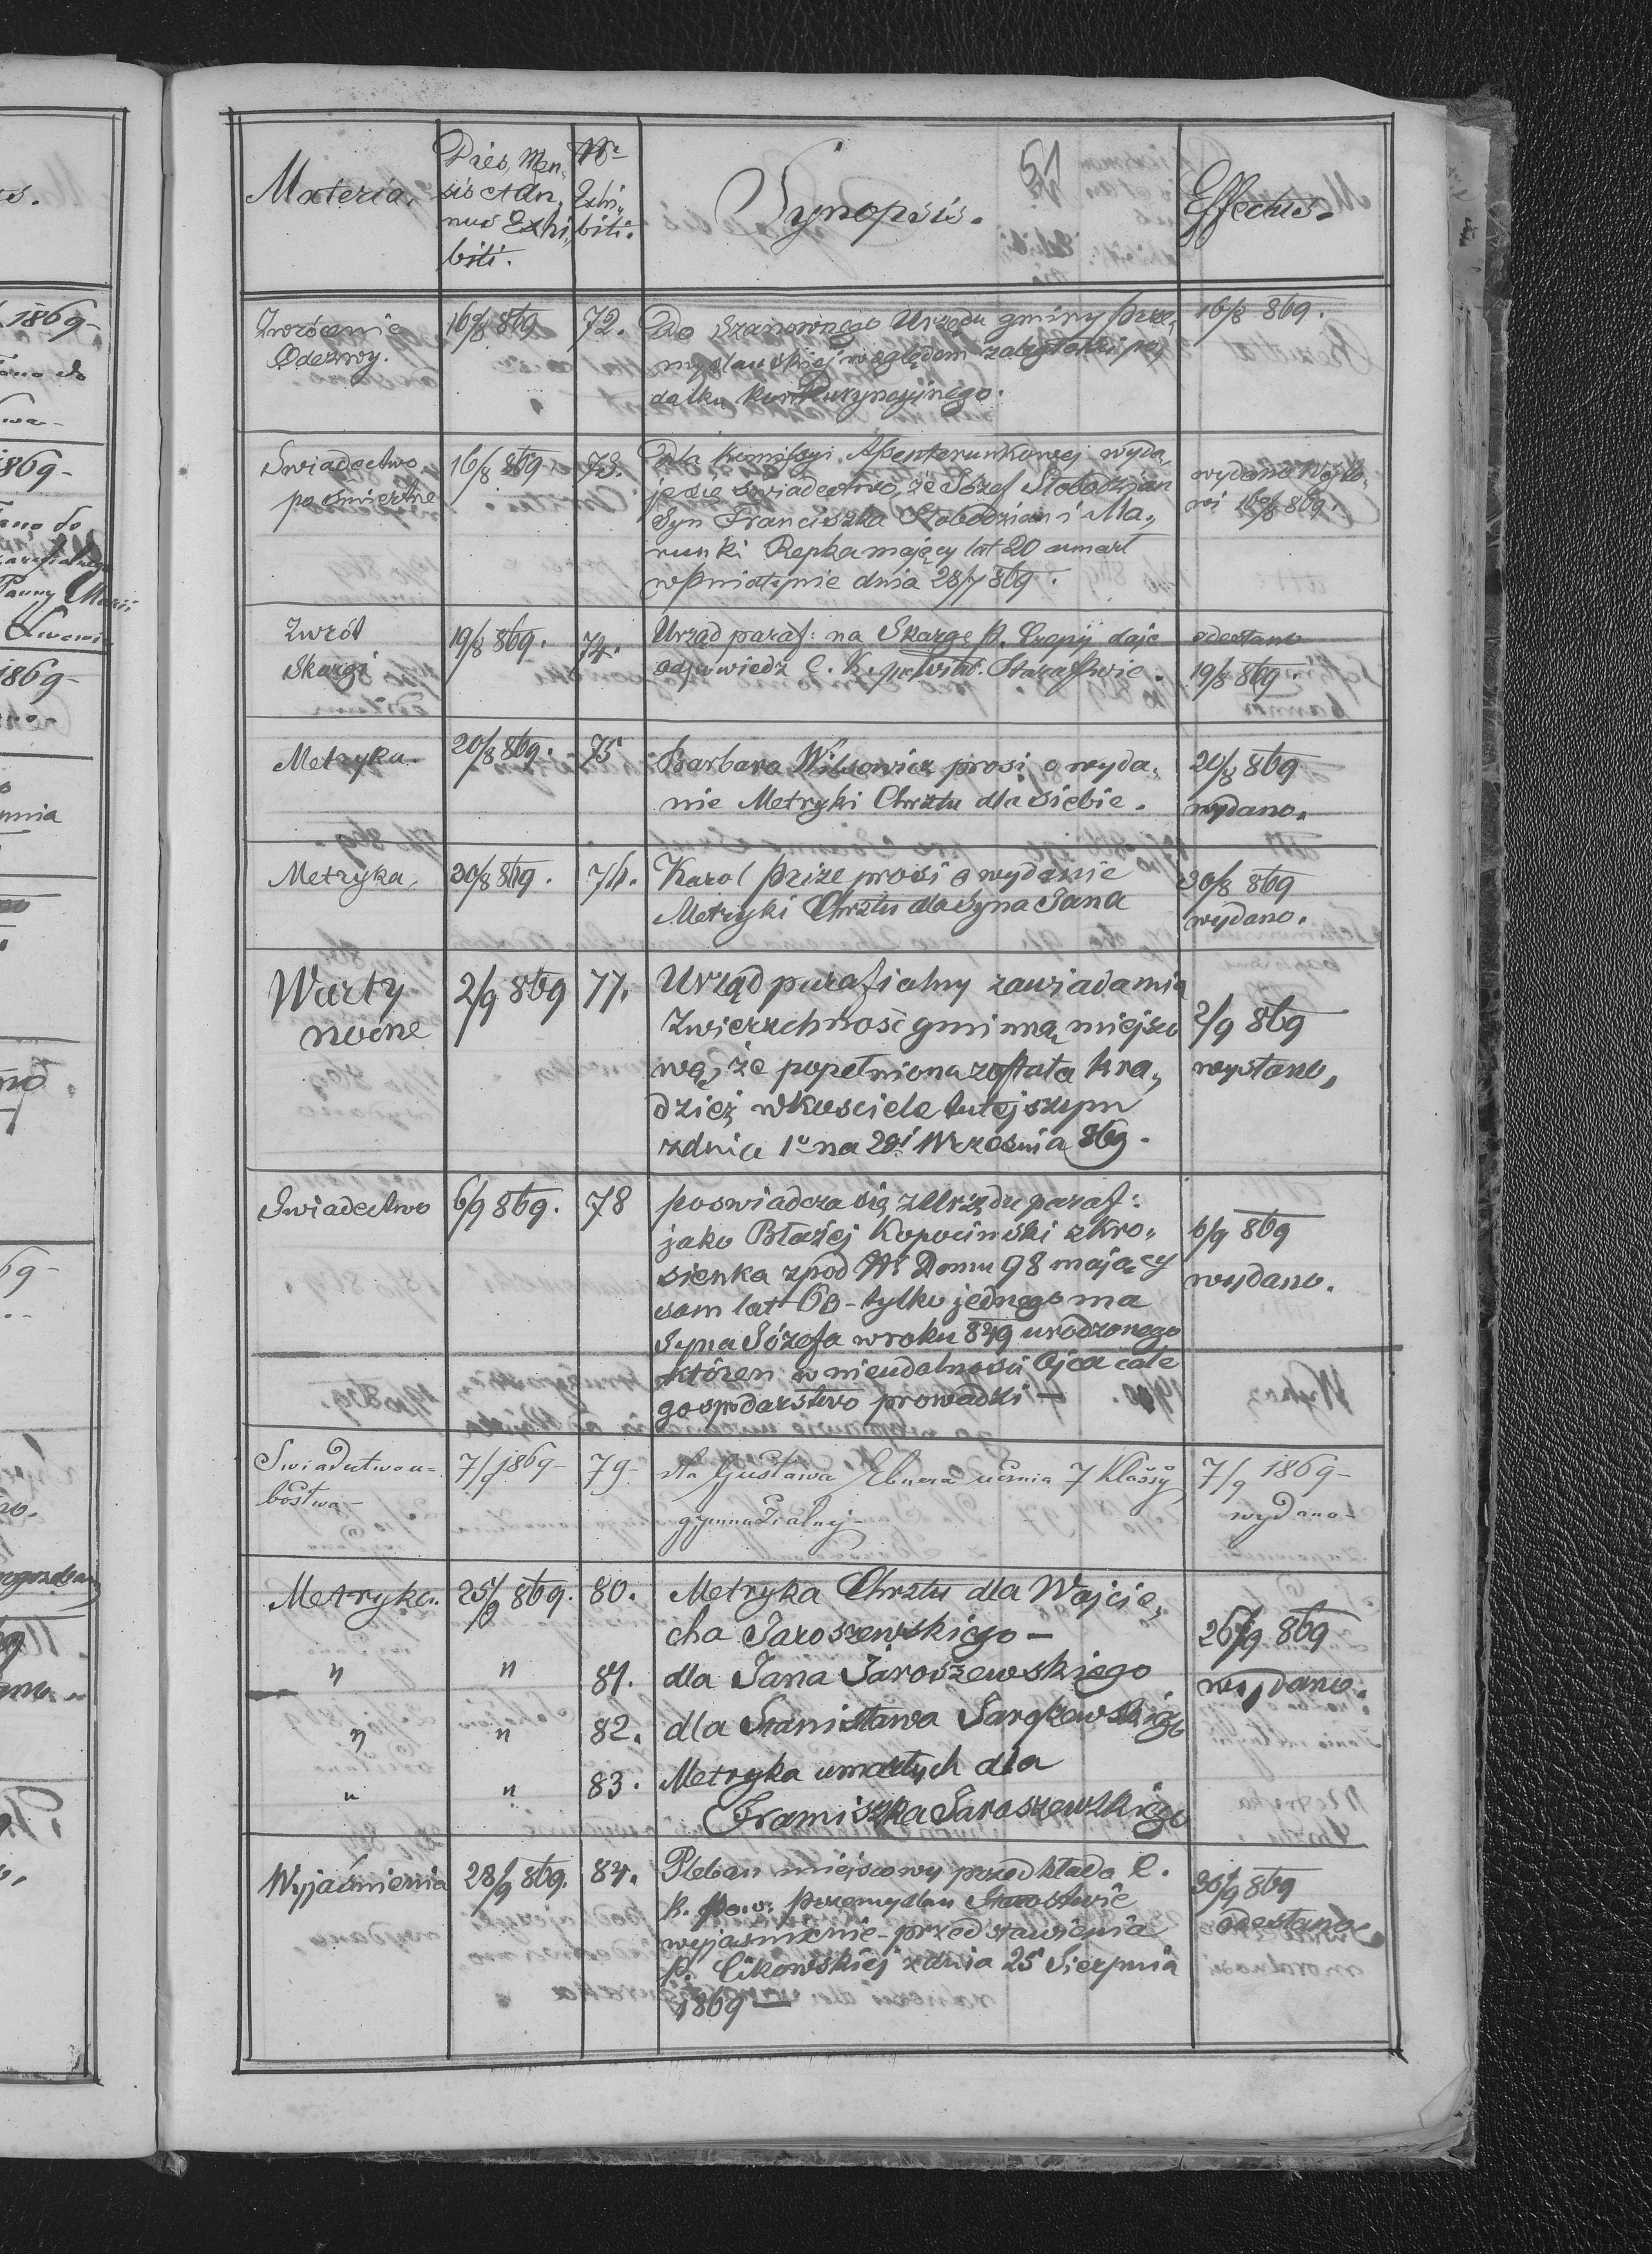 51
Materia.
Dies, Men,
sis et An,
nus Exhi,
biti.
Nr
Exhi,
biti.
Synopsis.
Effectus.
Zwrócenie
Odezwy.
16/8 869
72.
Do Szanownego Urzędu gminy Prze,
myslańskiej względem zaległości po,
datku konkurencyjnego.
16/8 869.
Swiadectwo
pośmiertne
16/8 869
73.
Dla Komissyi Assenterunkowej wyda,
je się świadectwo, że Józef Słobodzian
Syn Franciszka Słobodzian i Ma,
runki Repka mający lat 20 umarł
w Pniatynie dnia 28/7 869.
wydano Wójto,
wi 16/8 869.
Zwrót
Skargi
19/8 869.
74.
Urząd paraf: na Skargę P. Czepij daje
odpowiedź C. K. powiat. Starostwie.
odesłano
19/8 869.
Metryka
20/8 869.
75
Barbara Wilsowicz prosi o wyda,
nie Metryki Chrztu dla siebie.
20/8 869
wydano.
Metryka,
30/8 869.
76.
Karol Prize prosi o wydanie
Metryki Chrztu dla Syna Jana
30/8 869
wydano.
Warty
nocne
2/9 869
77.
Urząd parafialny zawiadamia
Zwierzchność gminną miejsco
wą, że popełniona została kra,
dzież w kościele tutejszym
z dnia 1o na 2gi Września 869.
2/9 869
wysłano,
Swiadectwo
6/9 869.
78
poswiadcza się z Urzędu paraf:
jako Błażej Kopociński z Kro,
sienka z pod Nr Domu 98 mający
sam lat 60 - tylko jednego ma
Syna Józefa w roku 849 urodzonego
któren w nieudolności Ojca całe
gospodarstwo prowadzi —
6/9 869
wydano.
Swiadectwo u-
bóstwa -
7/9 1869 -
79 -
dla Gustawa Ebnera ucznia 7 Klassy
gymnazialnej -
7/9 1869 -
wydano -
Metryka.
25/9 869.
80.
Metryka Chrztu dla Wojcie,
cha Jaroszewskiego —
26/9 869
wydano.
"
"
81.
dla Jana Jaroszewskiego
"
"
82.
dla Stanisława Jaroszewskiego
"
"
83.
Metryka umarłych dla
Franciszka Jaroszewskiego
Wyjaśnienia
28/9 869.
84.
Pleban miejscowy przedkłada C.
k. Pow: Przemyslan Starostwie
wyjaśnienie - przedstawienia
P. Cikowskiej z dnia 25 Sierpnia
1869 —
30/9 869
odesłano